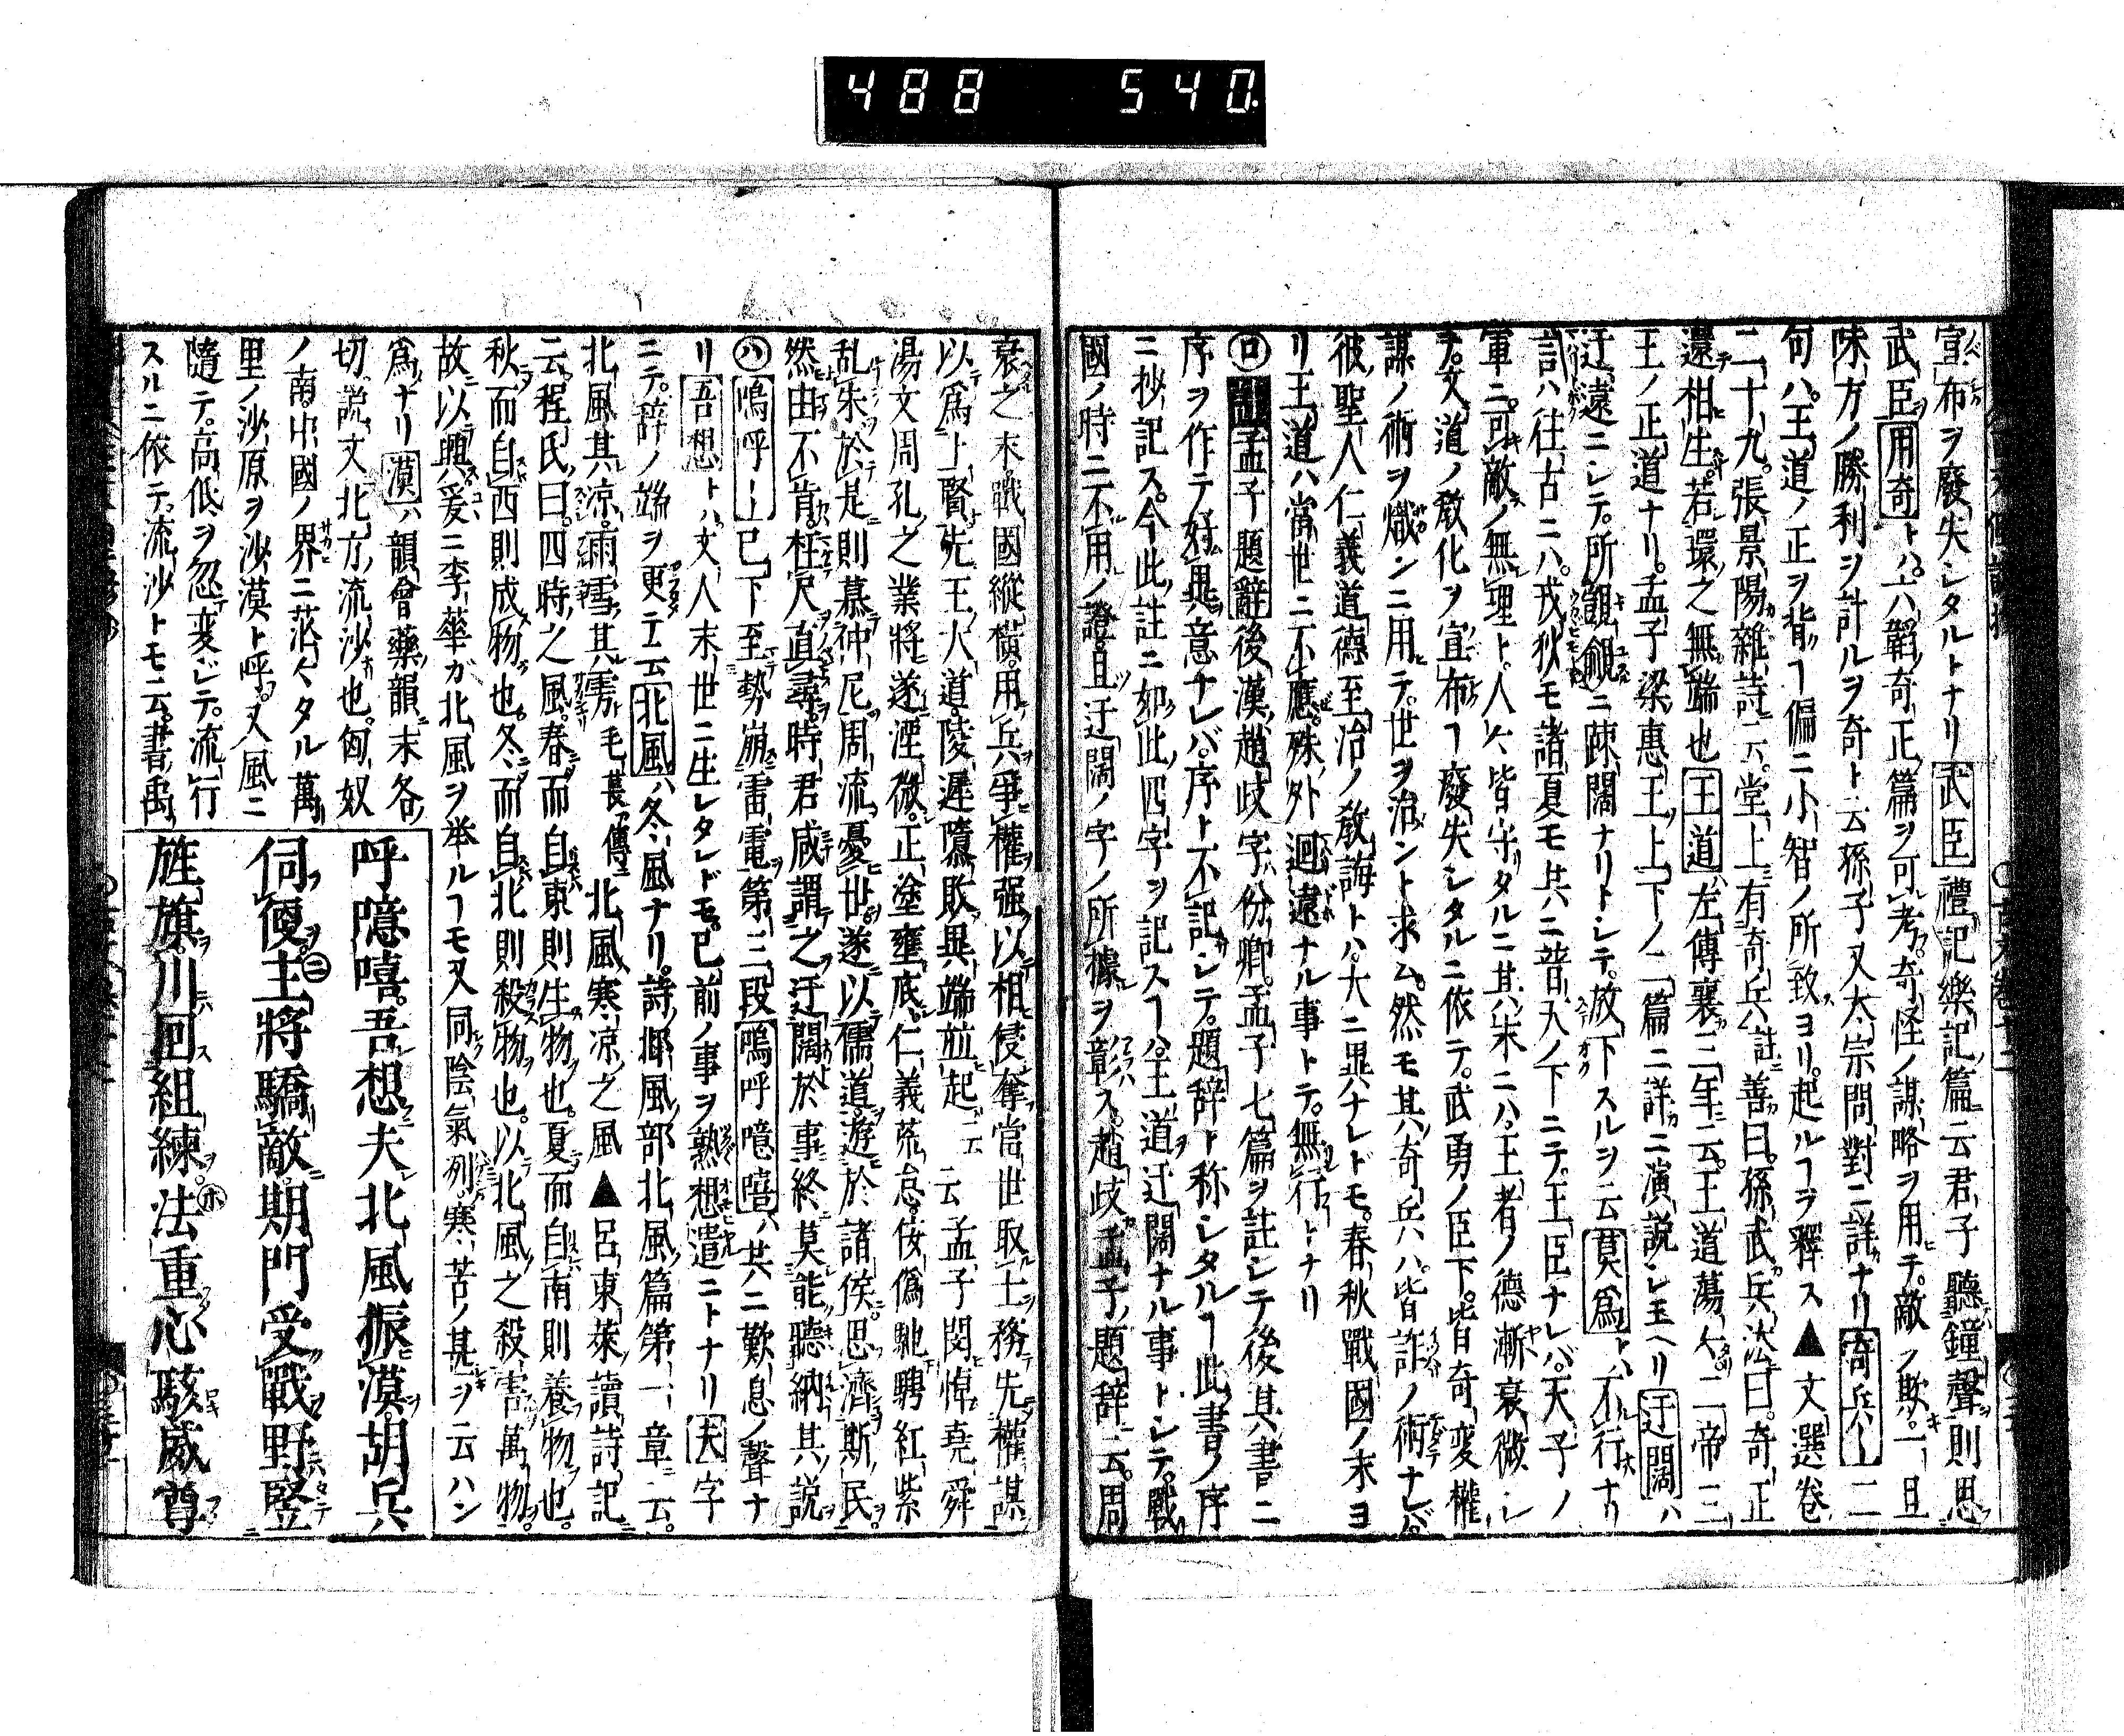 488 540.
宣布ヲ廢失シタルトナリ武臣禮記樂記篇云君子聽鐘聲則思
武臣用奇トハ六韜奇正篇ヲ可考奇怪ノ謀略ヲ用テ敵ヲ欺一旦
味方ノ勝利ヲ計ルヲ奇ト云孫子又太宗問對ニ詳ナリ奇兵ー二
句ハ王道ノ正ヲ背ヿ偏ニ小智ノ所致ヨリ起ルヿヲ釋ス▲文選卷
二十九張景陽雜詩云堂上有奇兵註善曰孫武兵法曰奇正
還相生若環之無端也王道左傳襄三年云王道蕩々二帝三
王ノ正道ナリ孟子梁惠王上下ノ二篇ニ詳ニ演説シ玉ヘリ迂闊ハ
迂遠ニシテ所覬覦ニ疎闊ナリトシテ放下スルヲ云莫爲トハ不行ナリ
訁ハ往古ニハ戎狄モ諸夏モ共ニ普天ノ下ニテ王臣ナレバ天子ノ
軍ニ可敵ノ無理ト人々皆守タルニ其末ニハ王者ノ德漸衰微シ
テ文道ノ敎化ヲ宣布ヿ廢失シタルニ依テ武勇ノ臣下皆奇変權
謀ノ術ヲ熾ンニ用テ世ヲ治ント求ム然モ其奇兵ハ皆詐ノ術ナレバ
彼聖人仁義道德至治ノ敎誨トハ大ニ異ナレドモ春秋戰國ノ末ヨ
リ王道ハ當世ニ不應殊外迴遠ナル事トテ無行トナリ
ロ註孟子題辭後漢趙岐字份卿孟子七篇ヲ註シテ後其書ニ
序ヲ作テ好異意ナレバ序ト不記シテ題辞ト称シタルヿ此書ノ序
ニ抄記ス今此註ニ如此四字ヲ記スヿハ王道迂闊ナル事トシテ戰
國ノ時ニ不用ノ證且迂闊ノ字ノ所據ヲ彰ス趙岐孟子題辞云周
衰之末戰國縱橫用兵爭權强以相侵奪當世取士務先權謀
以爲上賢先王大道陵遲隳敗異端並起云云孟子閔悼堯舜
湯文周孔之業將遂湮微正塗壅底仁義荒怠佞僞馳騁紅紫
乱朱於是則慕仲尼周流憂世遂以儒道遊於諸侯思濟斯民
然由不肯枉尺直尋時君咸謂之迂闊於事終莫能聽納其説
ハ嗚呼ー上已下至勢崩雷電第三段嗚呼噫嘻ハ共ニ歎息ノ聲ナ
リ吾想トハ文人末世ニ生レタレドモ已前ノ事ヲ熟想遣ニトナリ夫字
ニテ辞ノ端ヲ更テ云北風ハ冬風ナリ詩邶風部北風篇第一章云
北風其涼雨雪其雱毛萇傳北風寒涼之風▲呂東萊讀詩記
云程氏曰四時之風春而自東則生物也夏而自南則養物也
秋而自西則成物也冬而自北則殺物也以北風之殺害萬物
故以興爰ニ李華ガ北風ヲ举ルヿモ又同陰氣列寒苦ノ甚ヲ云ハン
爲ナリ漠ハ韻會藥韻末各
切説文北方流沙也匈奴
ノ南中國ノ界ニ茫々タル萬
里ノ沙原ヲ沙漠ト呼又風ニ
隨テ高低ヲ忽変ジテ流行
スルニ依テ流沙トモ云書禹
呼噫嘻吾想夫北風振漠胡兵
伺便主將驕敵期門受戰野竪
旌旗川回組練法重心駭威尊